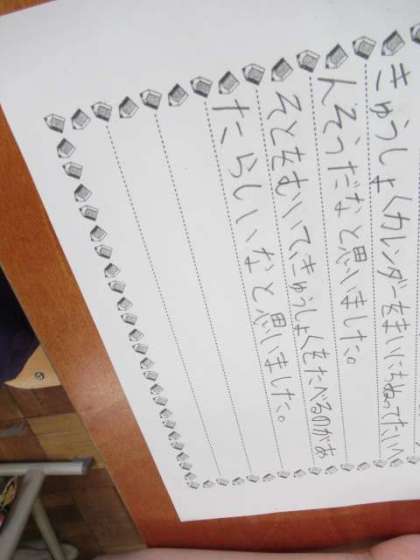 きゅうしょくカレンダーをまいにちぬってたいへ
んそうだなと思いました。
そとをむいてきゅうしょくをたべるのがあ
たらしいなと思いました。